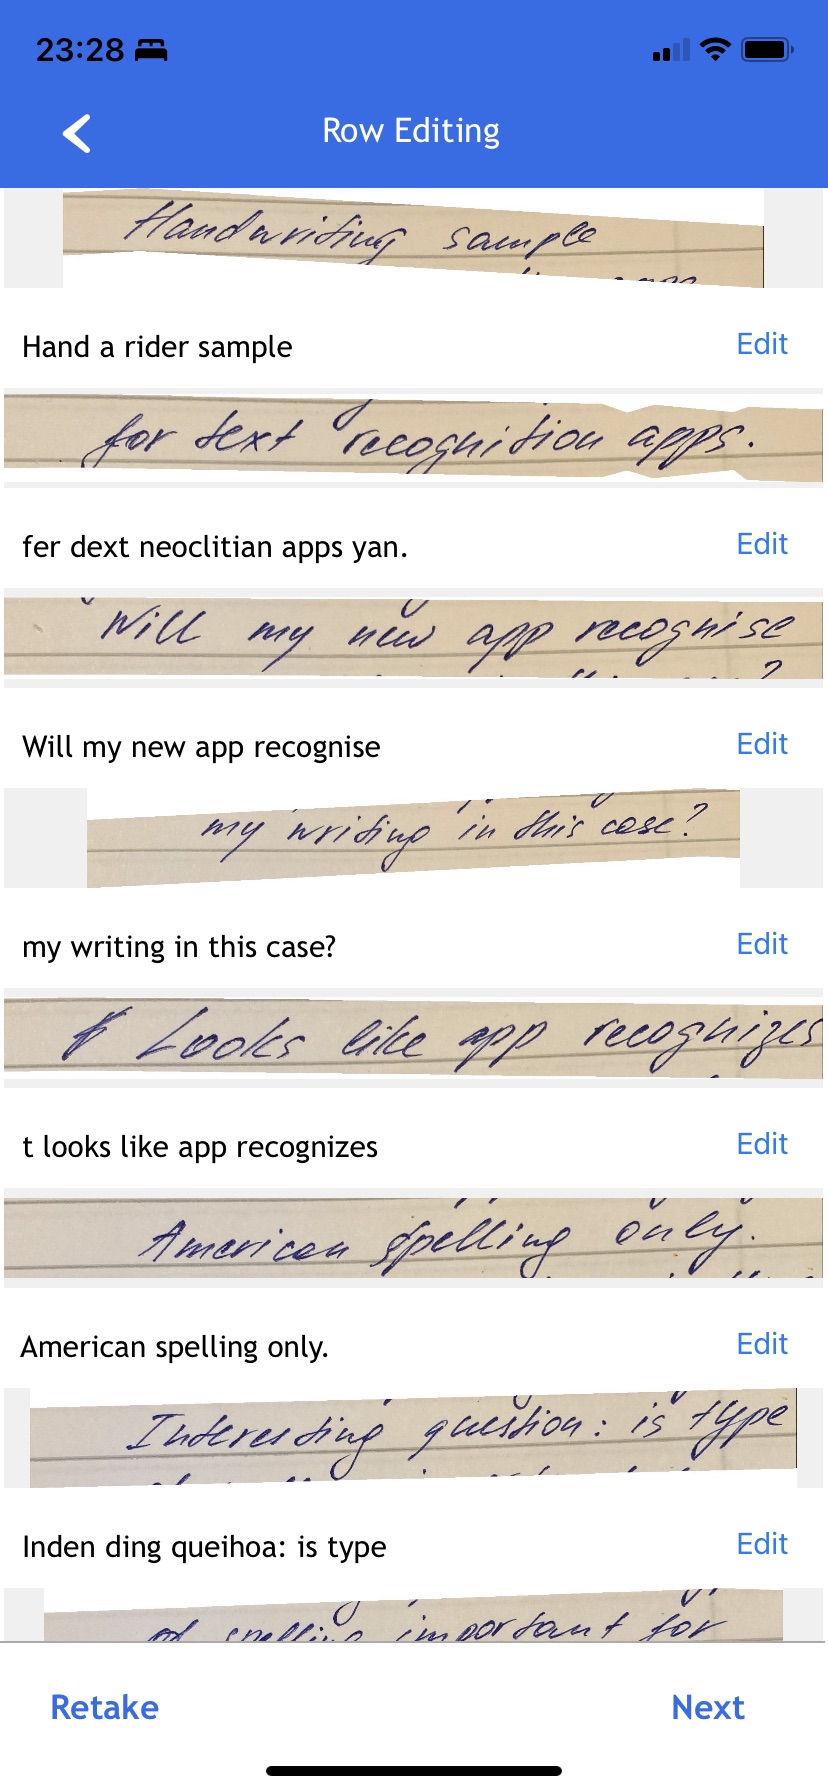 23:28
Row Editing
Handwriting sample
Hand a rider sample
Edit
for text recognition apps.
fer dext neoclitian apps yan.
Edit
Will my new app recognise
Will my new app recognise
Edit
my writing in this case?
my writing in this case?
Edit
Looks like app recognizes
t looks like app recognizes
Edit
American spelling only.
American spelling only.
Edit
Interesting question: is type
Inden ding queihoa: is type
Edit
of spelling important for
Retake
Next